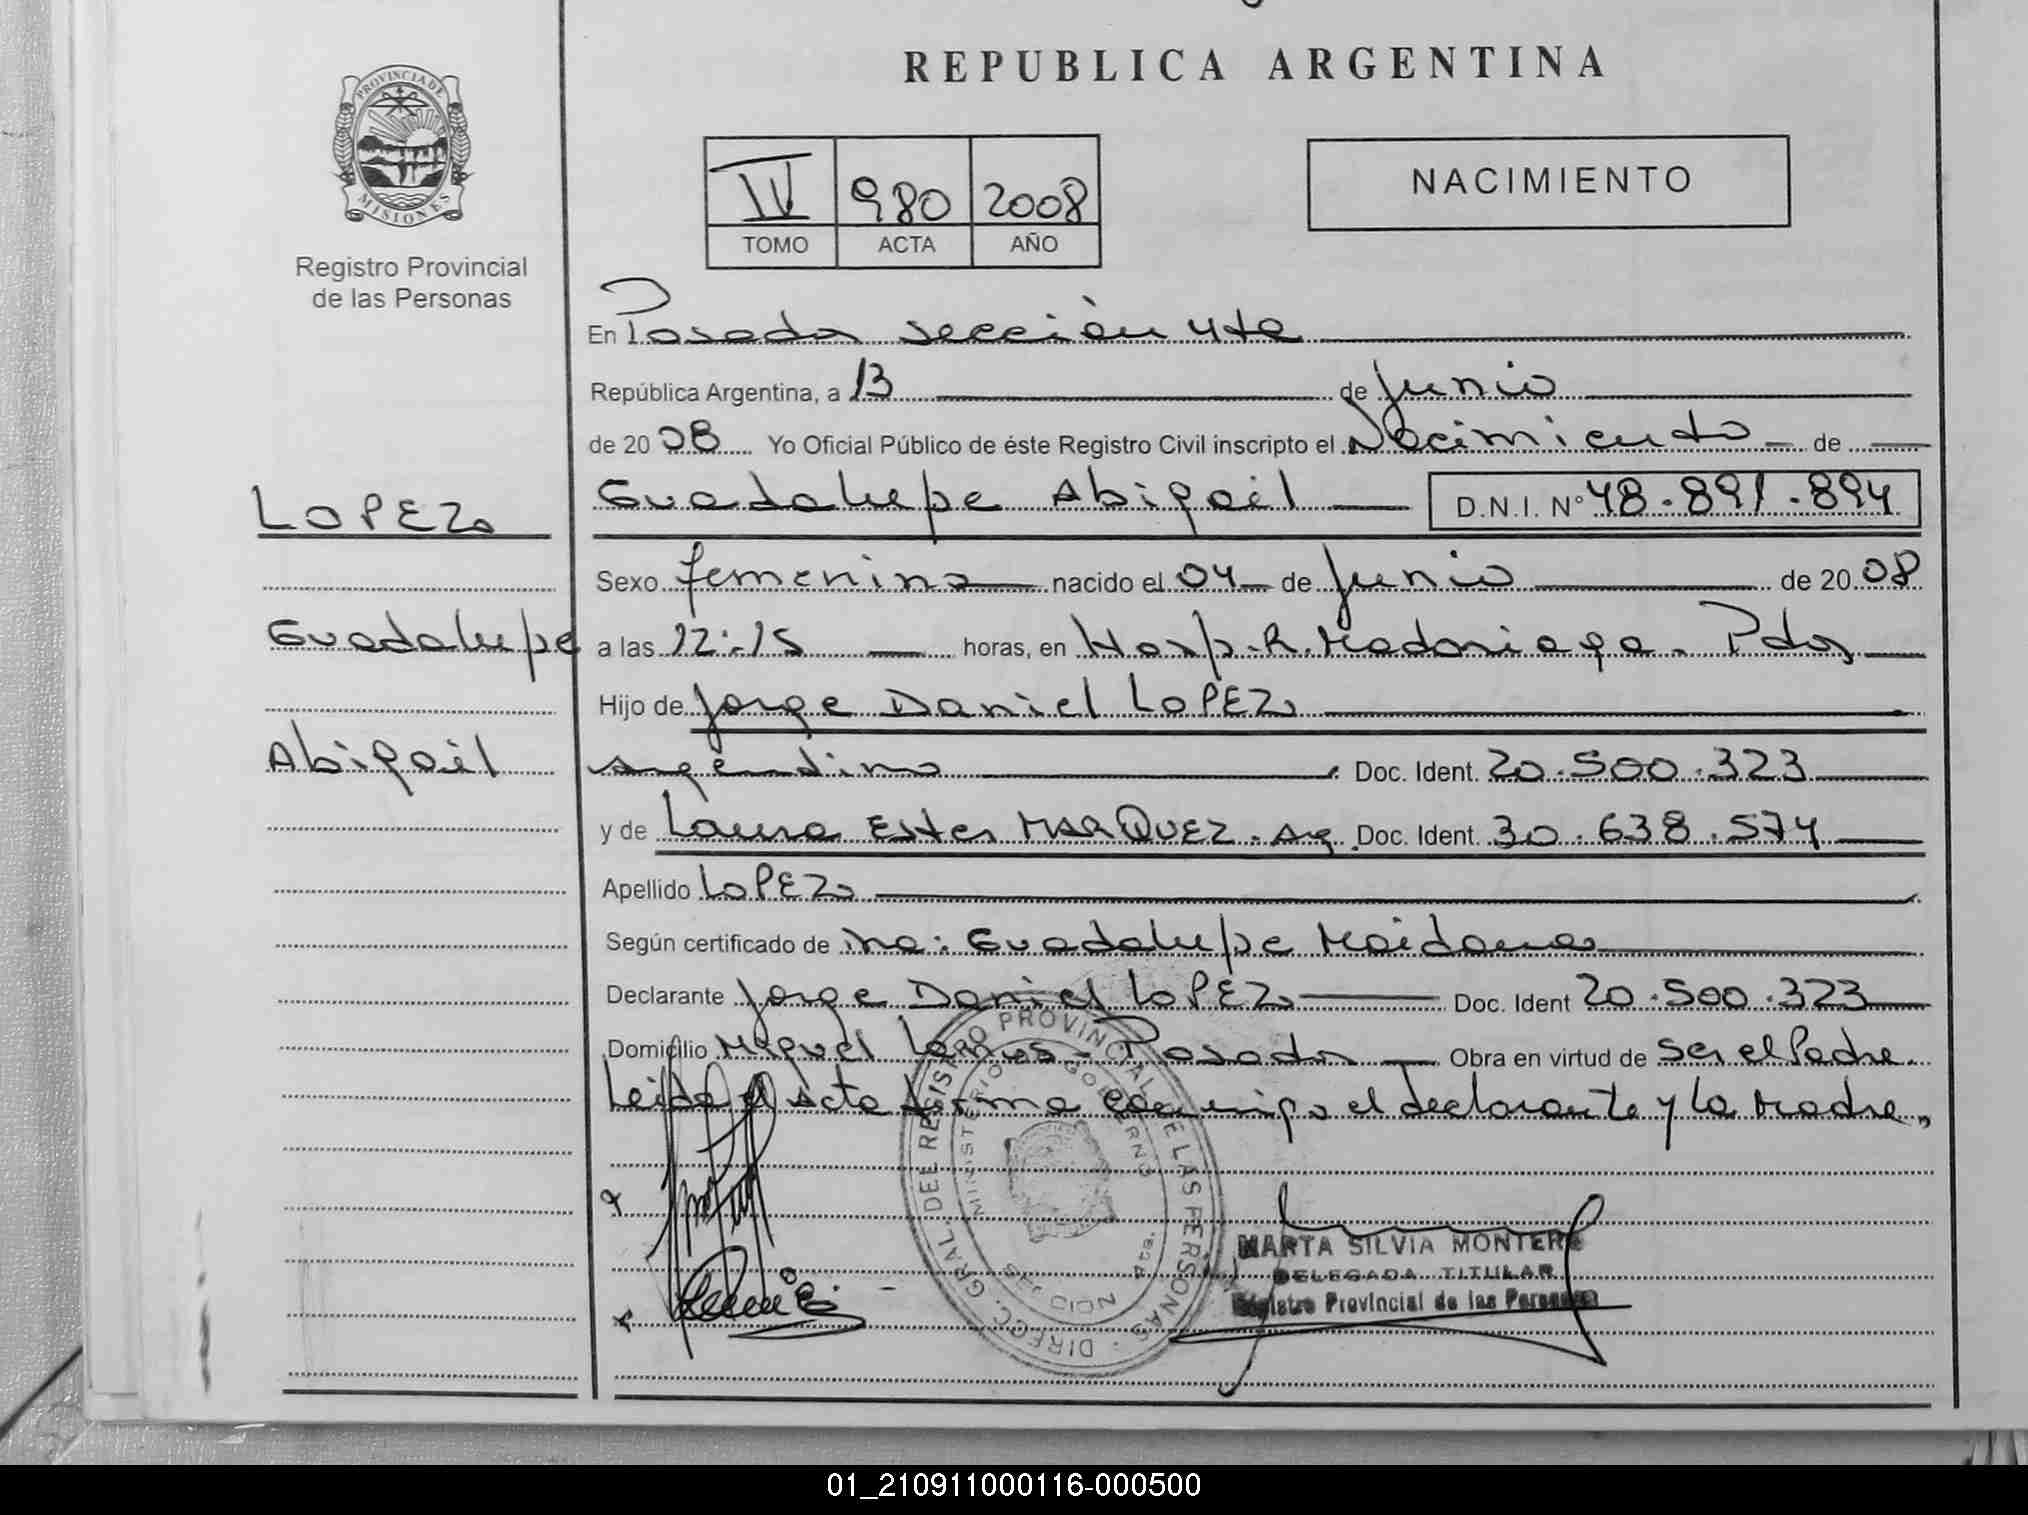 REPUBLICA ARGENTINA
PROVINCIA DE
MISIONES
Registro Provincial
de las Personas
IV 980 2008
TOMO ACTA AÑO
NACIMIENTO
En Posadas sección 4ta
República Argentina, a 13 de Junio
de 20 08 Yo Oficial Público de éste Registro Civil inscripto el Nacimiento de
LOPEZ
Guadalupe Abigail D.N.I. Nº 48.891.894
Sexo femenino nacido el 04 de Junio de 20 08
Guadalupe
a las 12:15 horas, en Hosp. R. Madariaga. Pdas
Hijo de Jorge Daniel LOPEZ
Abigail
argentino Doc. Ident. 20.500.323
y de Laura Ester MARQUEZ. Arg. Doc. Ident. 30.638.574
Apellido LOPEZ
Según certificado de Guadalupe Maidana
Declarante Jorge Daniel LOPEZ Doc. Ident 20.500.323
Domicilio Miguel Lanus - Posadas Obra en virtud de ser el Padre.
Leida el Acta firma conmigo el declarante y la Madre
DIRECC. GRAL. DEL REGISTRO PROVINCIAL DE LAS PERSONAS
MINISTERIO GOBIERNO
MARTA SILVIA MONTERO
DELEGADA TITULAR
Registro Provincial de las Personas
01_210911000116-000500